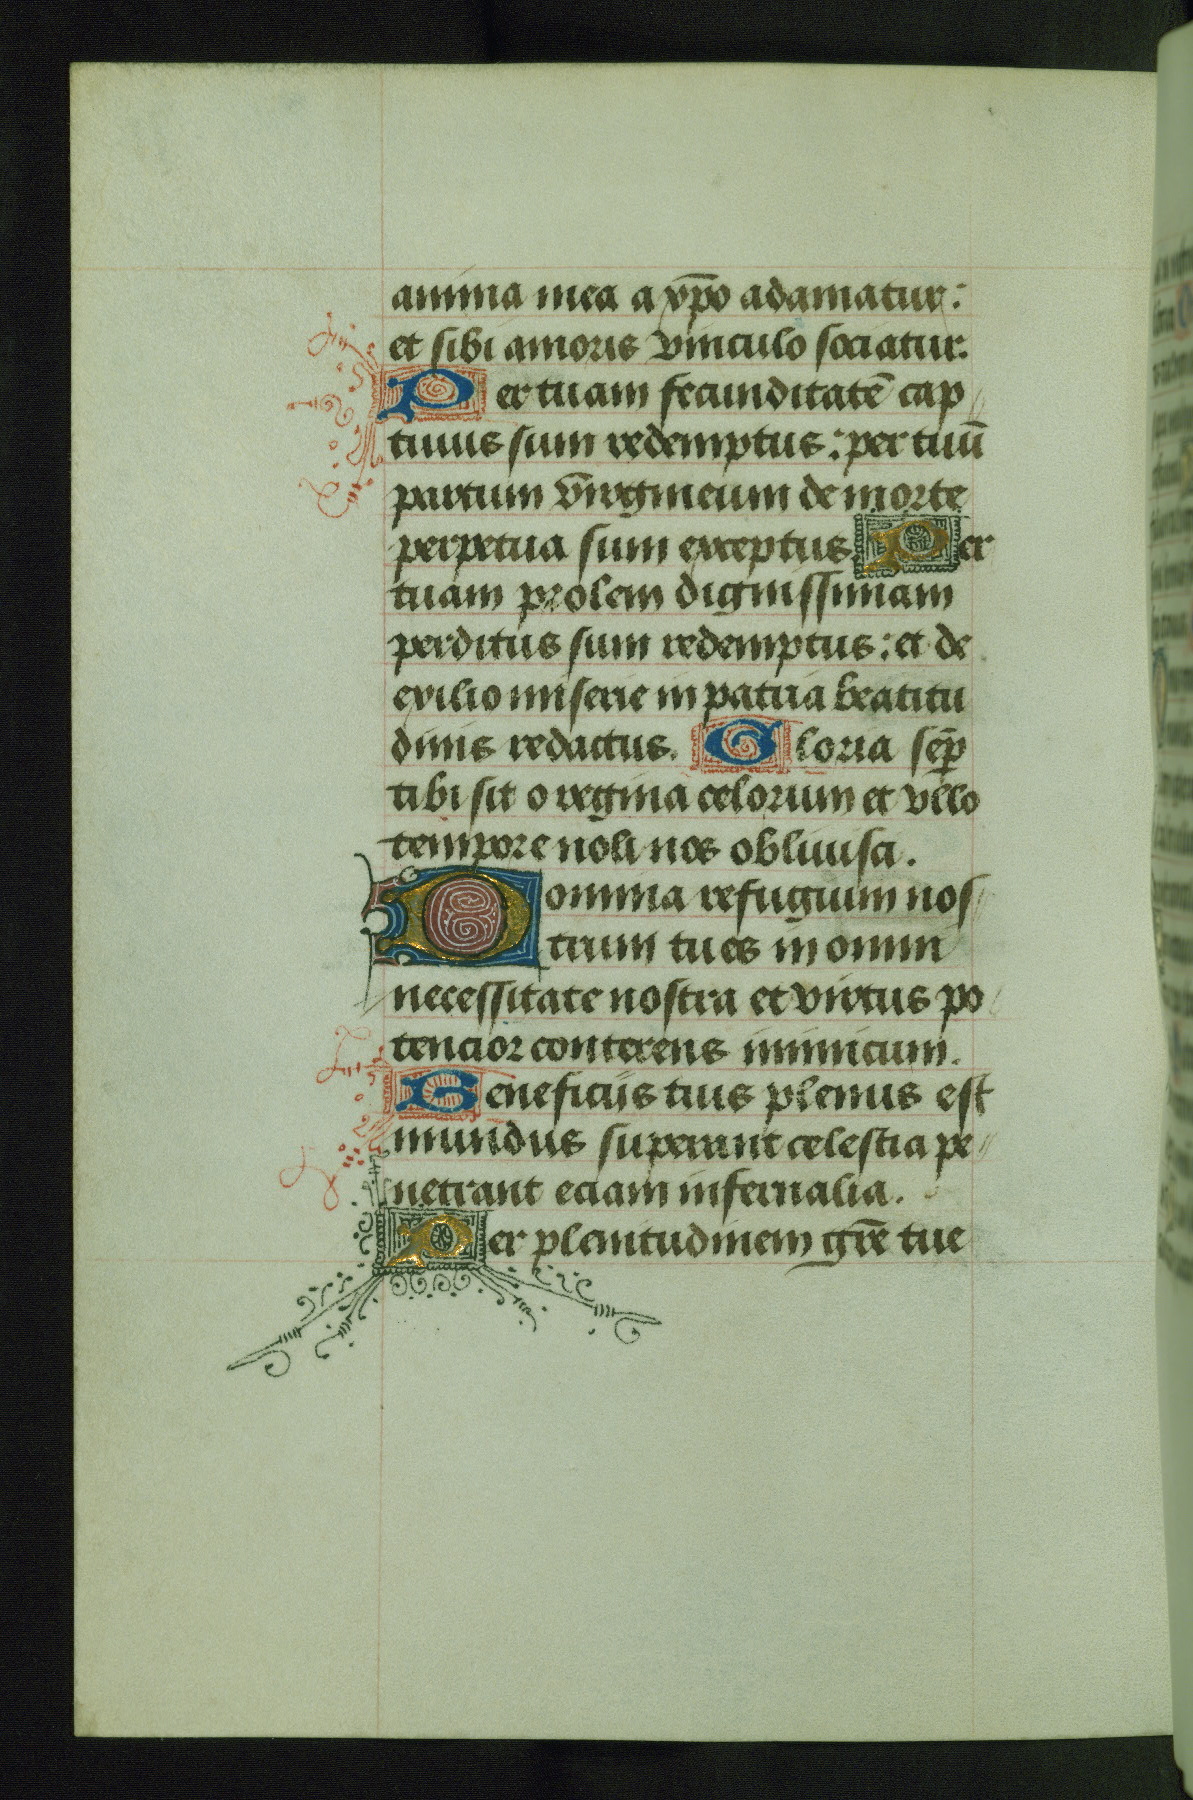 anima mea a xp̄o adamatur:
et sibi amoris vinculo sociatur.
Per tuam fecunditatē cap
tiuus sum redemptus: per tuū
partum v̄irgineum de morte
perpetua sum exceptus. Per
tuam prolem dignissimam
perditus sum redemptus: et de
exilio miserie in patria beatitu
dinis redactus. Gloria sep̄
tibi sit o regina celorum et vllo
tempore noli nos obliuisci.
Domina refugium nos
trum tu es in omni
necessitate nostra et virtus po
tencior conterens inimicum.
Beneficijs tuis plenus est
mundus superant celestia pe
netrant eciam infernalia.
Per plenitudinem gr̄e tue